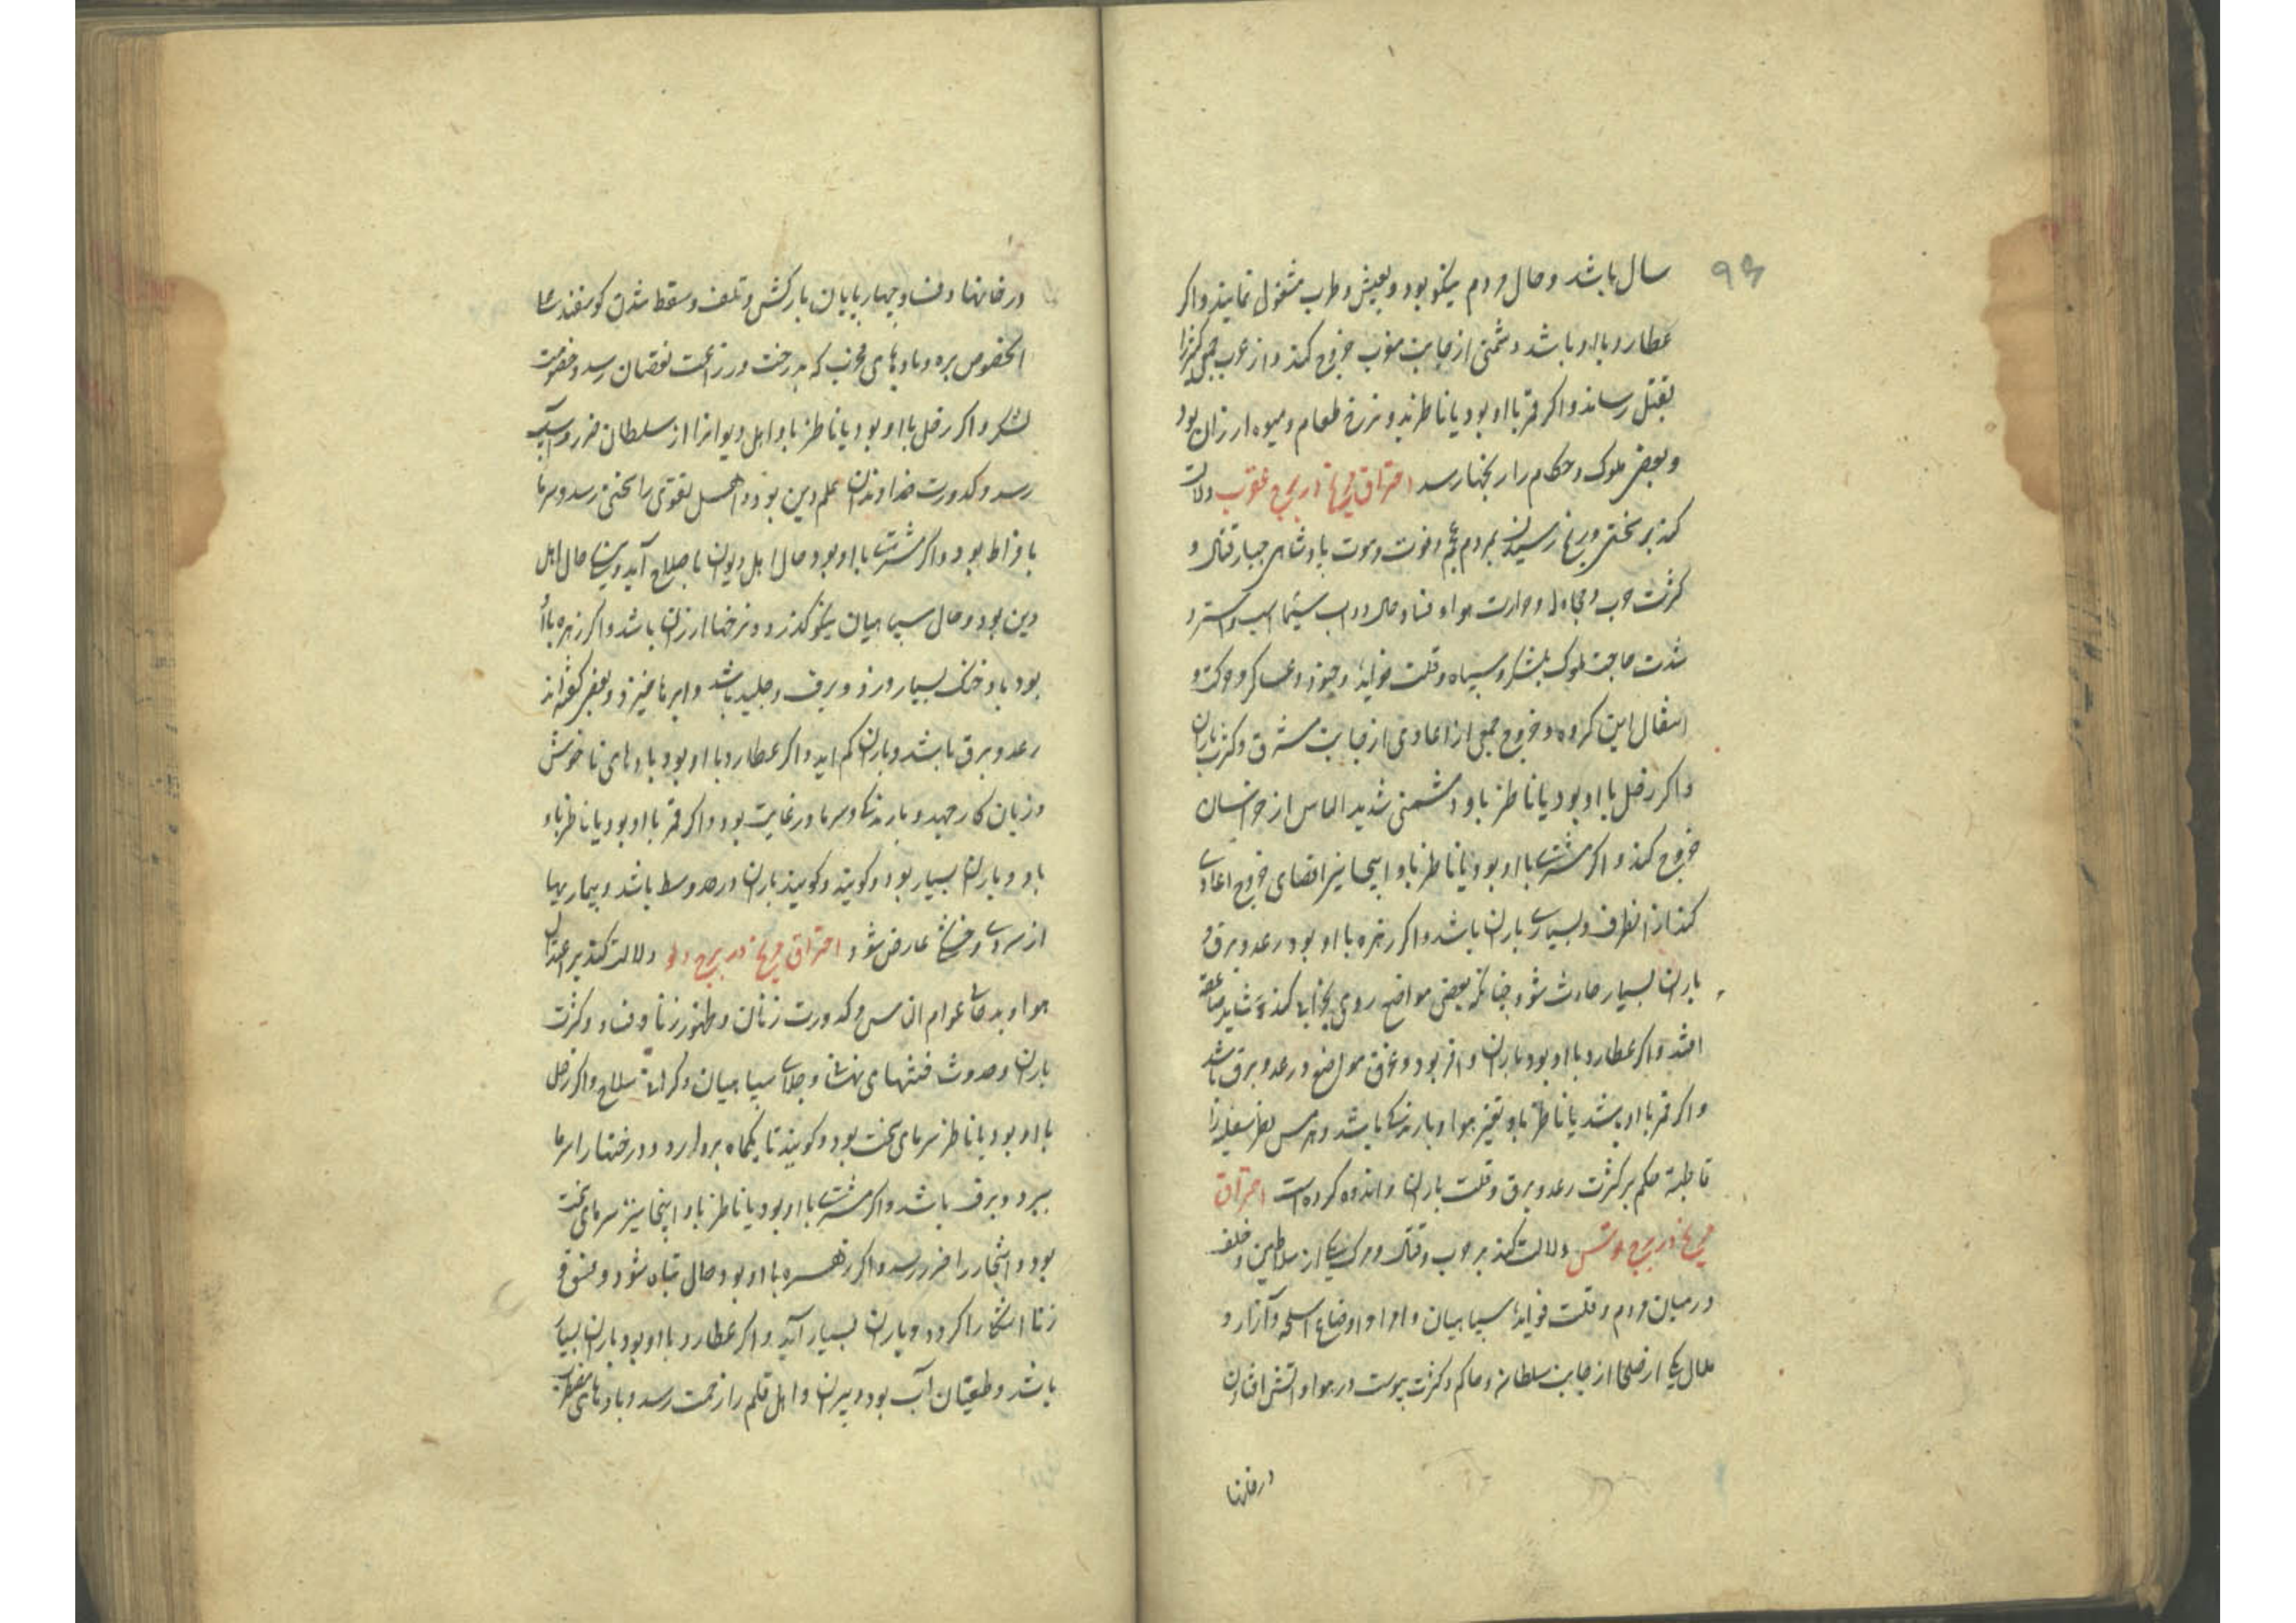 ۹۶
سال باشد و حال مردم نیکو بود و بعیش و طرب مشغول نمایند و اکر
عطارد با او باشد دشمنی از جانب مغرب خروج کند و از عرب جمعی کثیر را
بقتل رساند و اکر قمر با او بود یا ناظر بد و نرخ طعام و میوه ارزان بود
و بعضی ملوک و حکام را رنجها رسد احتراق مریخ در برج عقرب دلالت
کند بر سختی و رنج رسیدن بمردم عجم و فوت و موت پادشاهی جبار قتال و
کثرت حرب و مجادله و حرارت هوا و فساد حال دواب سیما اسب و استر و
شدت حاجت ملوک بلشکر و سپاه و قلت فواید و جنود و عساکر و حرکت و
انتقال این کروه و خروج جمعی از اعادی از جانب مشرق و کثرت باران
و اکر زحل با او بود یا ناظر باو دشمنی شدید الباس از خراسان
خروج کند و اکر مشتری با او بود یا ناظر باو اینجا نیز اقتضای خروج اعادی
کند از انطرف و بسیاری باران باشد و اکر زهره با او بود رعد و برق و
باران بسیار حادث شود چنانکه بعضی مواضع روی بخرابی کند و شاید صاعقه
افتد و اکر عطارد با او بود باران وافر بود و غرق مواضع و رعد و برق باشد
و اکر قمر با او باشد یا ناظر باو تغیر هوا و بارندکی باشد و هرمس
قاطبة حکم بر کثرت رعد و برق و قلت باران و اندوه کرده است احتراق
مریخ در برج قوس دلالت کند بر حرب و قتال و مرک یکی از سلاطین و خلف
در میان مردم و قلت فواید سپاهیان و امرا و اوضاع اسلحه و آزار و
ملال یکی از صلحا از جانب سلطان و حاکم و کثرت یبوست در هوا و اتش افتادن
در خانها
در خانها و فساد چهارپایان بارکش و تلف و سقط شدن کوسفند علی
الخصوص بره و بادهای مخرب که بدرخت و زراعت نقصان رسد و خصومت
لشکر و اکر زحل با او بود یا ناظر باو اهل دیوانرا از سلطان ضرر و آسیب
رسد و کدورت خداوندان علم دین بود و اهل تقوی را سختی رسد و سرما
بافراط بود و اکر مشتری با او بود حال اهل دیوان باصلاح آید و حال اهل
دین بود و حال سپاهیان نیکو کذرد و نرخها ارزان باشد و اکر زهره با او
بود باد خنک بسیار وزد و برف و جلید باشد و ابرها خیزد و بعضی کفته اند
رعد و برق باشد و باران کم اید و اکر عطارد با او بود بادهای ناخوش
وزبان کار جهد و بارندکی و سرما در غایت بود و اکر قمر با او بود یا ناظر باو
باد و باران بسیار بود و کویند و کویند باران در حد وسط باشد و بیماریها
از سردی و خشکی عارض شود احتراق مریخ در برج دلو دلالت کند بر اعتدال
هوا و بدحالی عوام الناس و کدورت زنان و ظهور زنا و فساد و کثرت
باران و حدوث فتنهای نهانی و جلای سپاهیان و کرانی سلاح و اکر زحل
با او بود یا ناظر سرمای سخت بود و کویند تا یکماه بردارد و درختها را سرما
ببرد و برف باشد و اکر مشتری با او بود یا ناظر باو اینجا نیز سرمای سخت
بود و اشجار را ضرر رسد و اکر زهره با او بود حال تباه شود و فسق و
زنا اشکارا کردد و باران بسیار آید و اکر عطارد با او بود باران بسیار
باشد و طغیان آب بود و دبیران و اهل قلم را زحمت رسد و بادهای